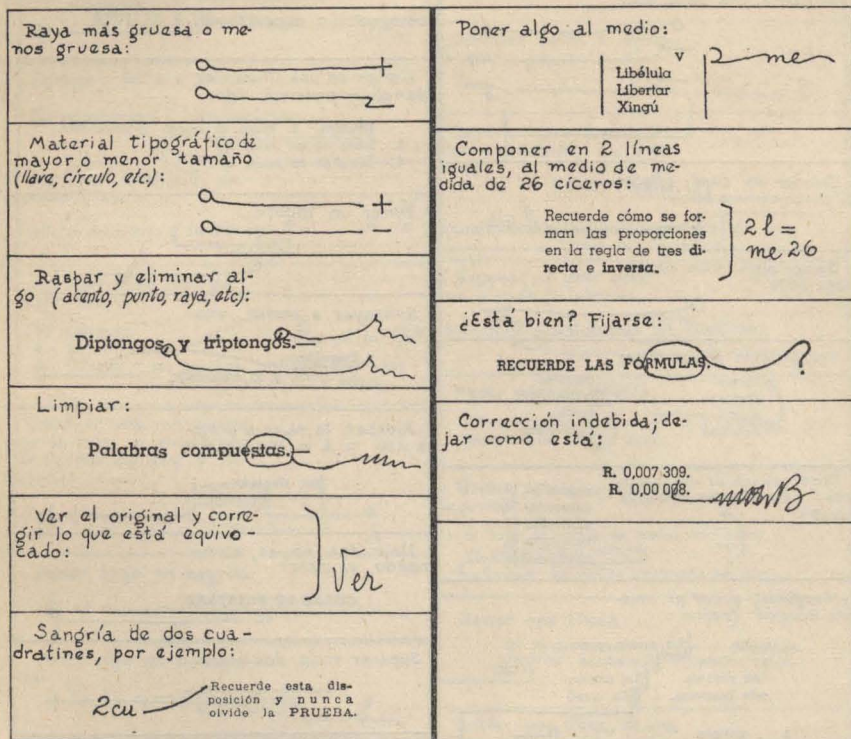 Raya más gruesa o me-
nos gruesa:
+
−
Material tipográfico de
mayor o menor tamaño
(llave, círculo, etc.):
+
−
Raspar y eliminar al-
go (acento, punto, raya, etc):
Diptongos y triptongos.—
Limpiar:
Palabras compuestas.—
Ver el original y corre-
gir lo que está equivo-
cado:
Ver
Sangría de dos cua-
dratines, por ejemplo:
2cu
Recuerde esta dis-
posición y nunca
olvide la PRUEBA.
Poner algo al medio:
v
2 me
Libélula
Libertar
Xingú
Componer en 2 líneas
iguales, al medio de me-
dida de 26 cíceros:
Recuerde cómo se for-
man las proporciones
en la regla de tres di-
recta e inversa.
2 l =
me 26
¿Está bien? Fijarse:
RECUERDE LAS FÓRMULAS.
?
Corrección indebida; de-
jar como está:
R. 0,007 309.
R. 0,00 008.